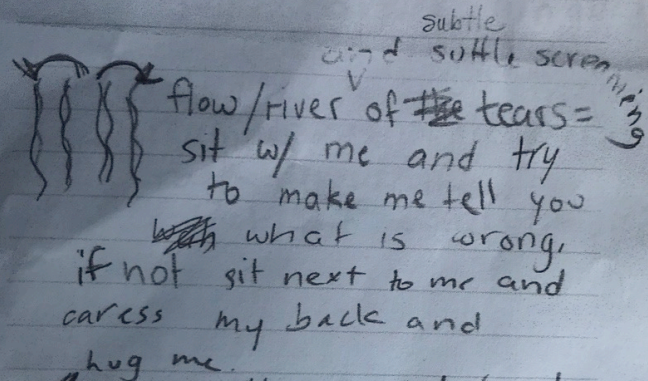 subtle
and suttle screaming
flow/river of tears =
sit w/ me and try
to make me tell you
what is wrong,
if not sit next to me and
caress my back and
hug me.